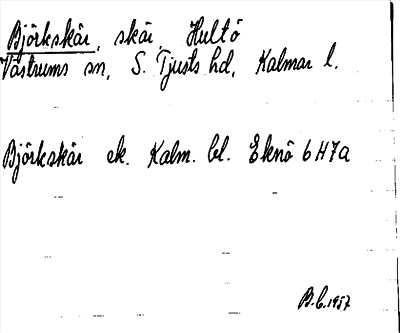 Björkskär, skär, Hultö
Västrums sn, S. Tjusts hd, Kalmar l.
Björkskär ek. Kalm. bl. Eknö 6 H7a
B.C.1957